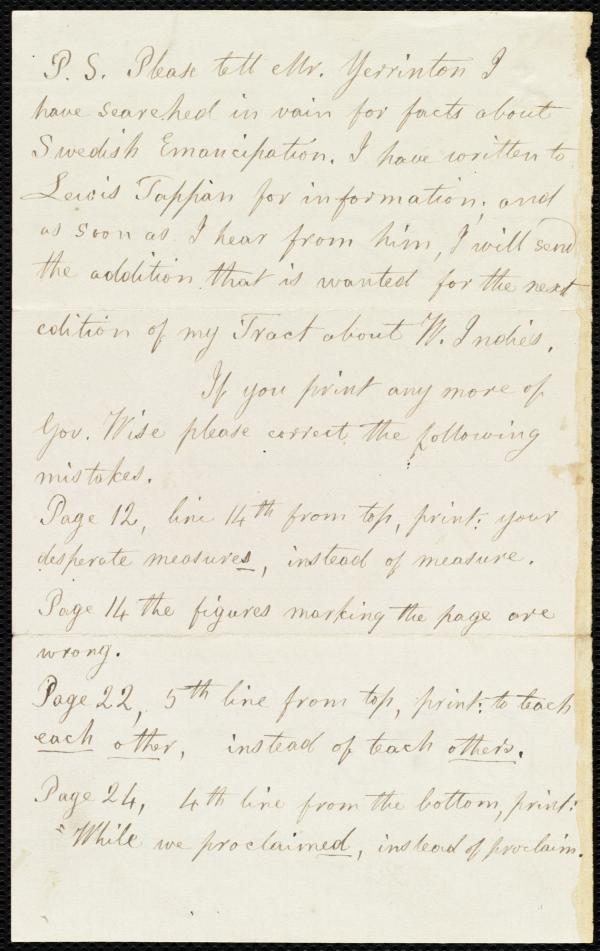 P. S. Please tell Mr. Yerrinton I
have searched in vain for facts about
Swedish Emancipation. I have written to
Lewis Tappan for information; and
as soon as I hear from him, I will send
the addition that is wanted for the next
edition of my Tract about W. Indies.
If you print any more of
Gov. Wise please correct the following
mistakes.
Page 12, line 14th from top, print: your
desperate measures, instead of measure.
Page 14 the figures marking the page are
wrong.
Page 22, 5th line from top, print: to teach
each other, instead of teach others.
Page 24, 4th line from the bottom, print:
"While we proclaimed, instead of proclaim.